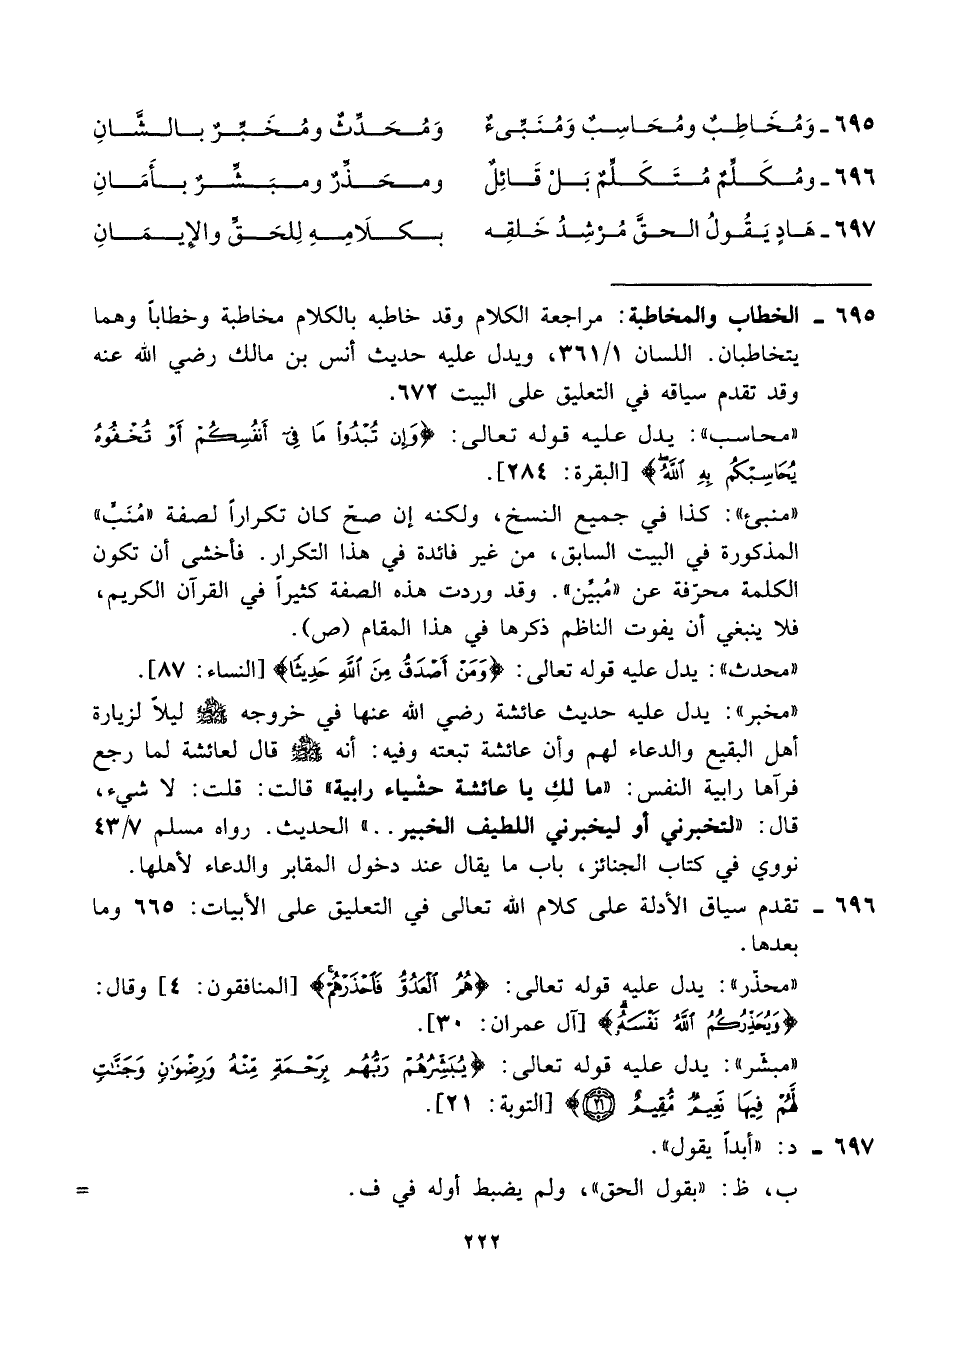 ٦٩٥ـ وَمُخَاطِبٌ ومُحَاسِبٌ وَمُنَبِّىءٌ وَمُحَدِّثٌ ومُخَبِّرٌ بالشَّانِ
٦٩٦ـ ومُكَلِّمٌ مُتَكَلِّمٌ بَلْ قَائِلٌ ومحَذِّرٌ ومبَشِّرٌ بأَمَانِ
٦٩٧ـ هَادٍ يَقُولُ الحقَّ مُرْشِدُ خَلقِه بكَلَامِهِ لِلحَقِّ والإيمَانِ
٦٩٥ ـ الخطاب والمخاطبة: مراجعة الكلام وقد خاطبه بالكلام مخاطبة وخطاباً وهما
يتخاطبان. اللسان ٣٦١/١، ويدل عليه حديث أنس بن مالك رضي الله عنه
وقد تقدم سياقه في التعليق على البيت ٦٧٢.
«محاسب»: يدل عليه قوله تعالى: ﴿وَإِن تُبْدُوا۟ مَا فِىٓ أَنفُسِكُمْ أَوْ تُخْفُوهُ
يُحَاسِبْكُم بِهِ ٱللَّهُ ۖ﴾ [البقرة: ٢٨٤].
«منبئ»: كذا في جميع النسخ، ولكنه إن صحّ كان تكراراً لصفة «مُنَبِّ»
المذكورة في البيت السابق، من غير فائدة في هذا التكرار. فأخشى أن تكون
الكلمة محرّفة عن «مُبيِّن». وقد وردت هذه الصفة كثيراً في القرآن الكريم،
فلا ينبغي أن يفوت الناظم ذكرها في هذا المقام (ص).
«محدث»: يدل عليه قوله تعالى: ﴿وَمَنْ أَصْدَقُ مِنَ ٱللَّهِ حَدِيثًا﴾ [النساء: ٨٧].
«مخبر»: يدل عليه حديث عائشة رضي الله عنها في خروجه ﷺ ليلاً لزيارة
أهل البقيع والدعاء لهم وأن عائشة تبعته وفيه: أنه ﷺ قال لعائشة لما رجع
فرآها رابية النفس: «ما لكِ يا عائشة حشْياء رابية» قالت: قلت: لا شيء،
قال: «لتخبرني أو ليخبرني اللطيف الخبير..» الحديث. رواه مسلم ٤٣/٧
نووي في كتاب الجنائز، باب ما يقال عند دخول المقابر والدعاء لأهلها.
٦٩٦ ـ تقدم سياق الأدلة على كلام الله تعالى في التعليق على الأبيات: ٦٦٥ وما
بعدها.
«محذّر»: يدل عليه قوله تعالى: ﴿هُمُ ٱلْعَدُوُّ فَٱحْذَرْهُمْ ۚ﴾ [المنافقون: ٤] وقال:
﴿وَيُحَذِّرُكُمُ ٱللَّهُ نَفْسَهُۥ ۗ﴾ [آل عمران: ٣٠].
«مبشّر»: يدل عليه قوله تعالى: ﴿يُبَشِّرُهُمْ رَبُّهُم بِرَحْمَةٍ مِّنْهُ وَرِضْوَٰنٍ وَجَنَّـٰتٍ
لَّهُمْ فِيهَا نَعِيمٌ مُّقِيمٌ ٢١﴾ [التوبة: ٢١].
٦٩٧ ـ د: «أبداً يقول».
ب، ظ: «بقول الحق»، ولم يضبط أوله في ف. =
٢٢٢